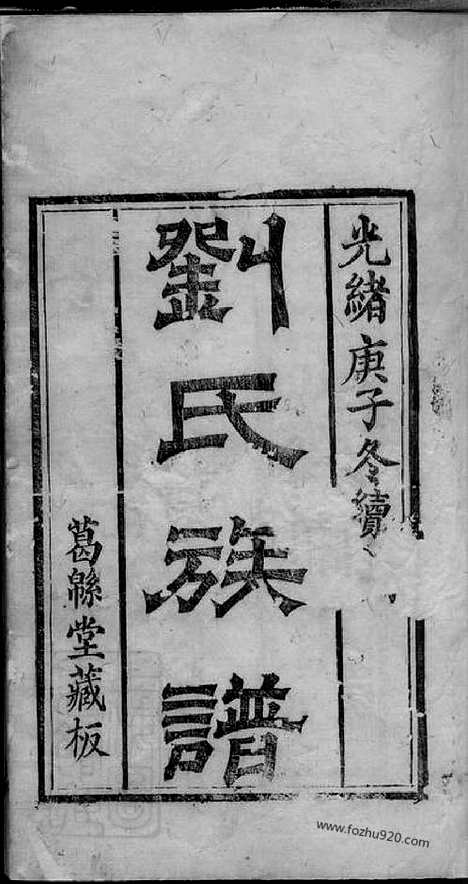 光緒庚子冬續
劉氏族譜
葛緜堂藏板
www.fozhu920.com